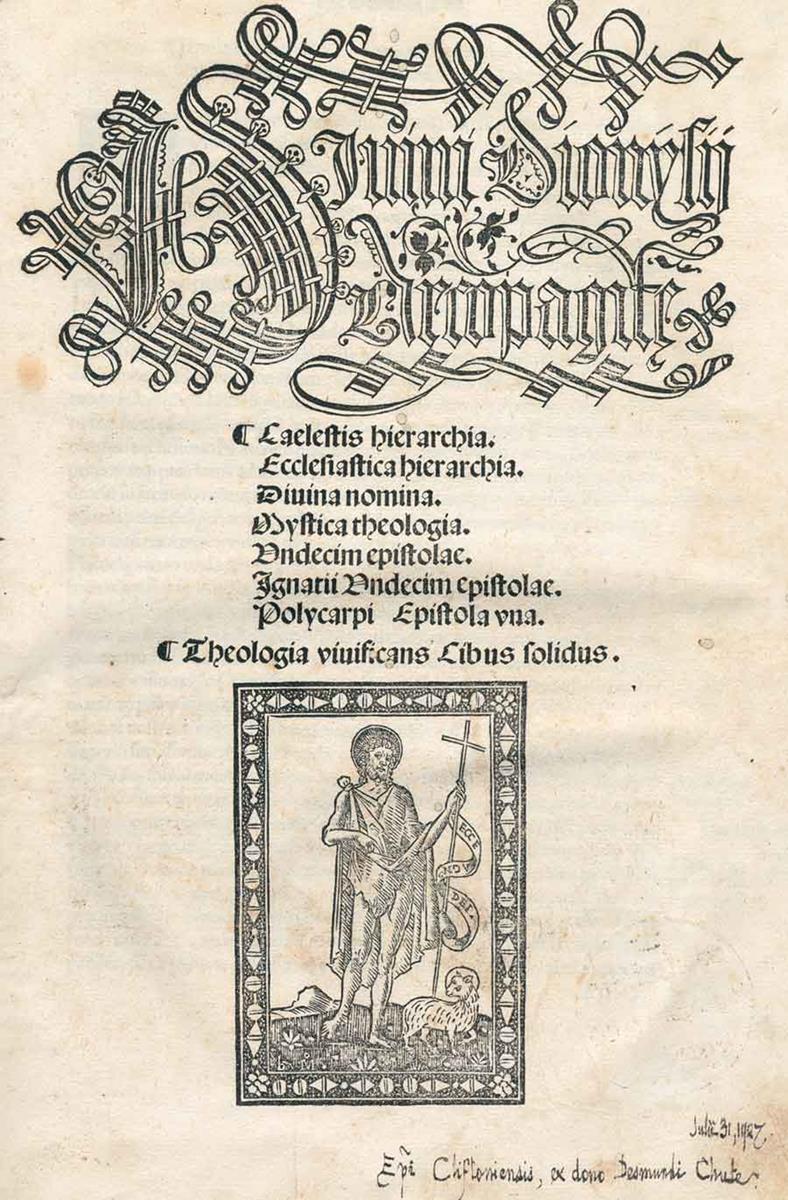 Diuini Dionysij
Areopagitę
¶ Caelestis hierarchia.
Ecclesiastica hierarchia.
Diuina nomina.
Mystica theologia.
Vndecim epistolae.
Ignatii Vndecim epistolae.
Polycarpi Epistola vna.
¶ Theologia viuificans Cibus solidus.
ECCE
DEI
b M
Julii 31, 1927.
Epi Cliftoniensis, ex dono Desmundi Chute.